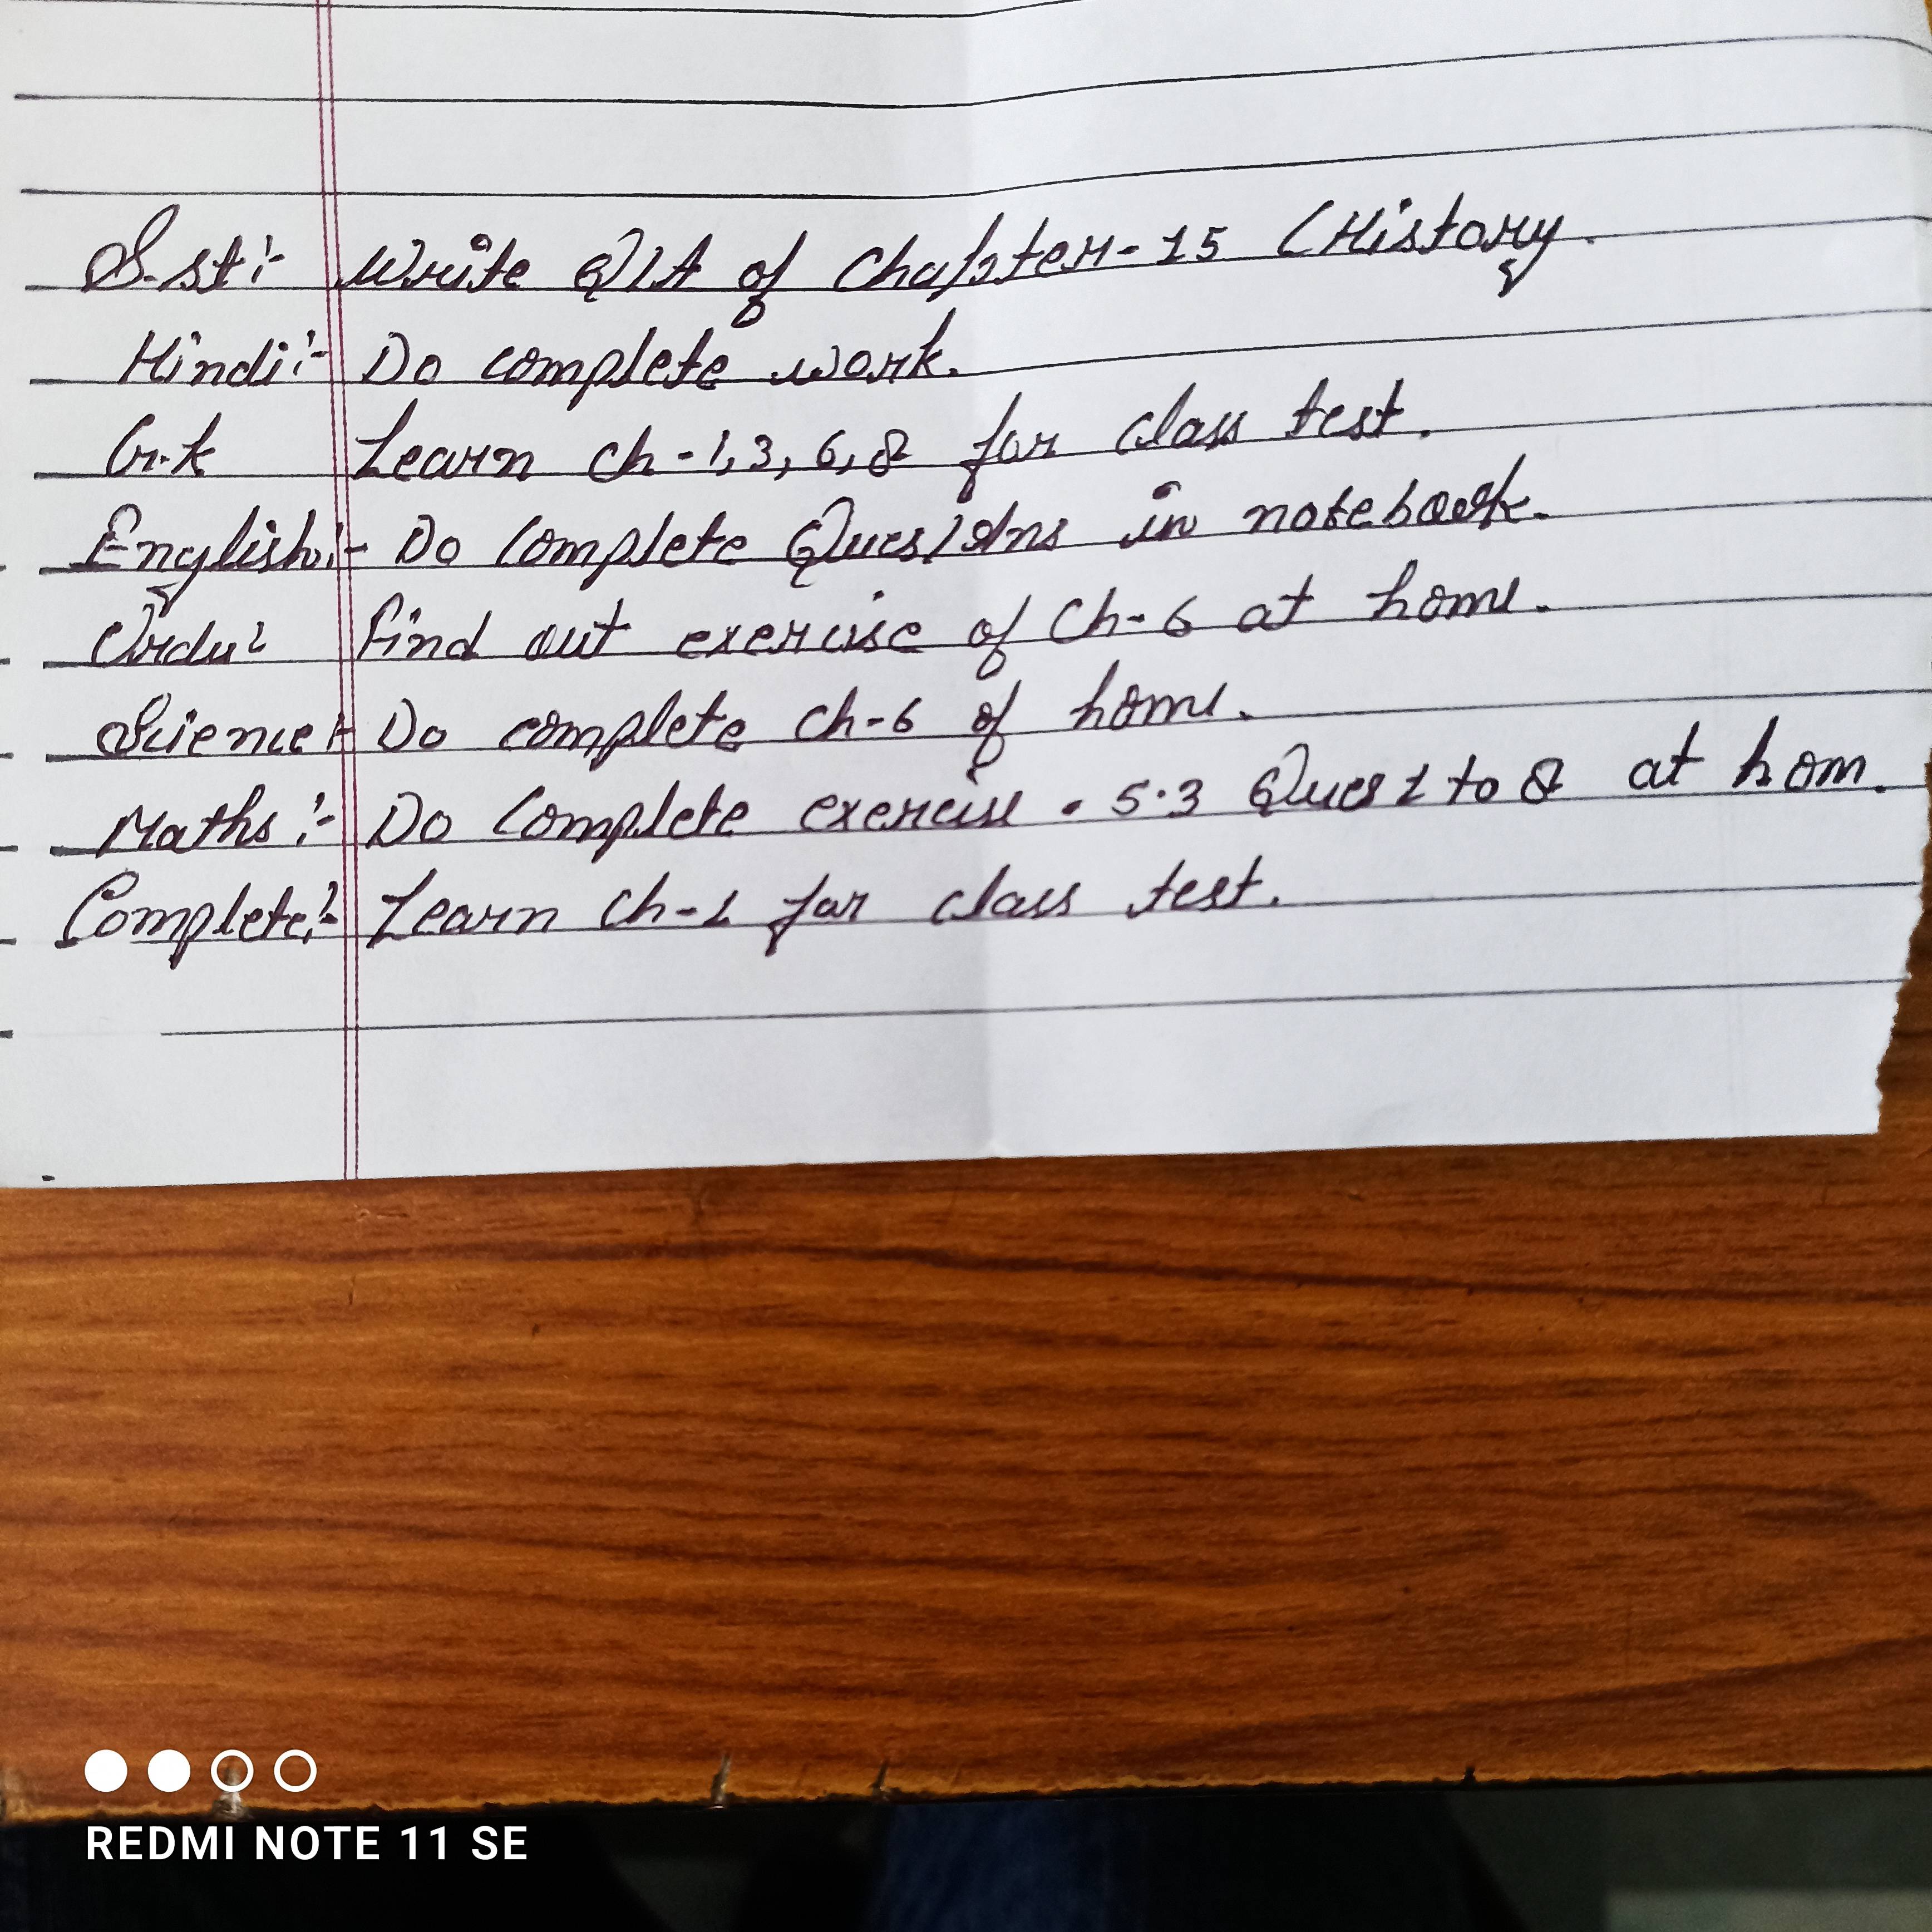 S.st:- Write Q/A of Chapter-15 (History.
Hindi:- Do complete work.
G.k Learn ch-1,3,6,8 for class test.
English:- Do Complete Ques/Ans in notebook.
Urdu: find out exercise of Ch-6 at home.
Science:- Do complete ch-6 of home.
Maths:- Do Complete exercise . 5.3 Ques 1 to 8 at hom.
Complete:- Learn ch-1 for class test.
REDMI NOTE 11 SE